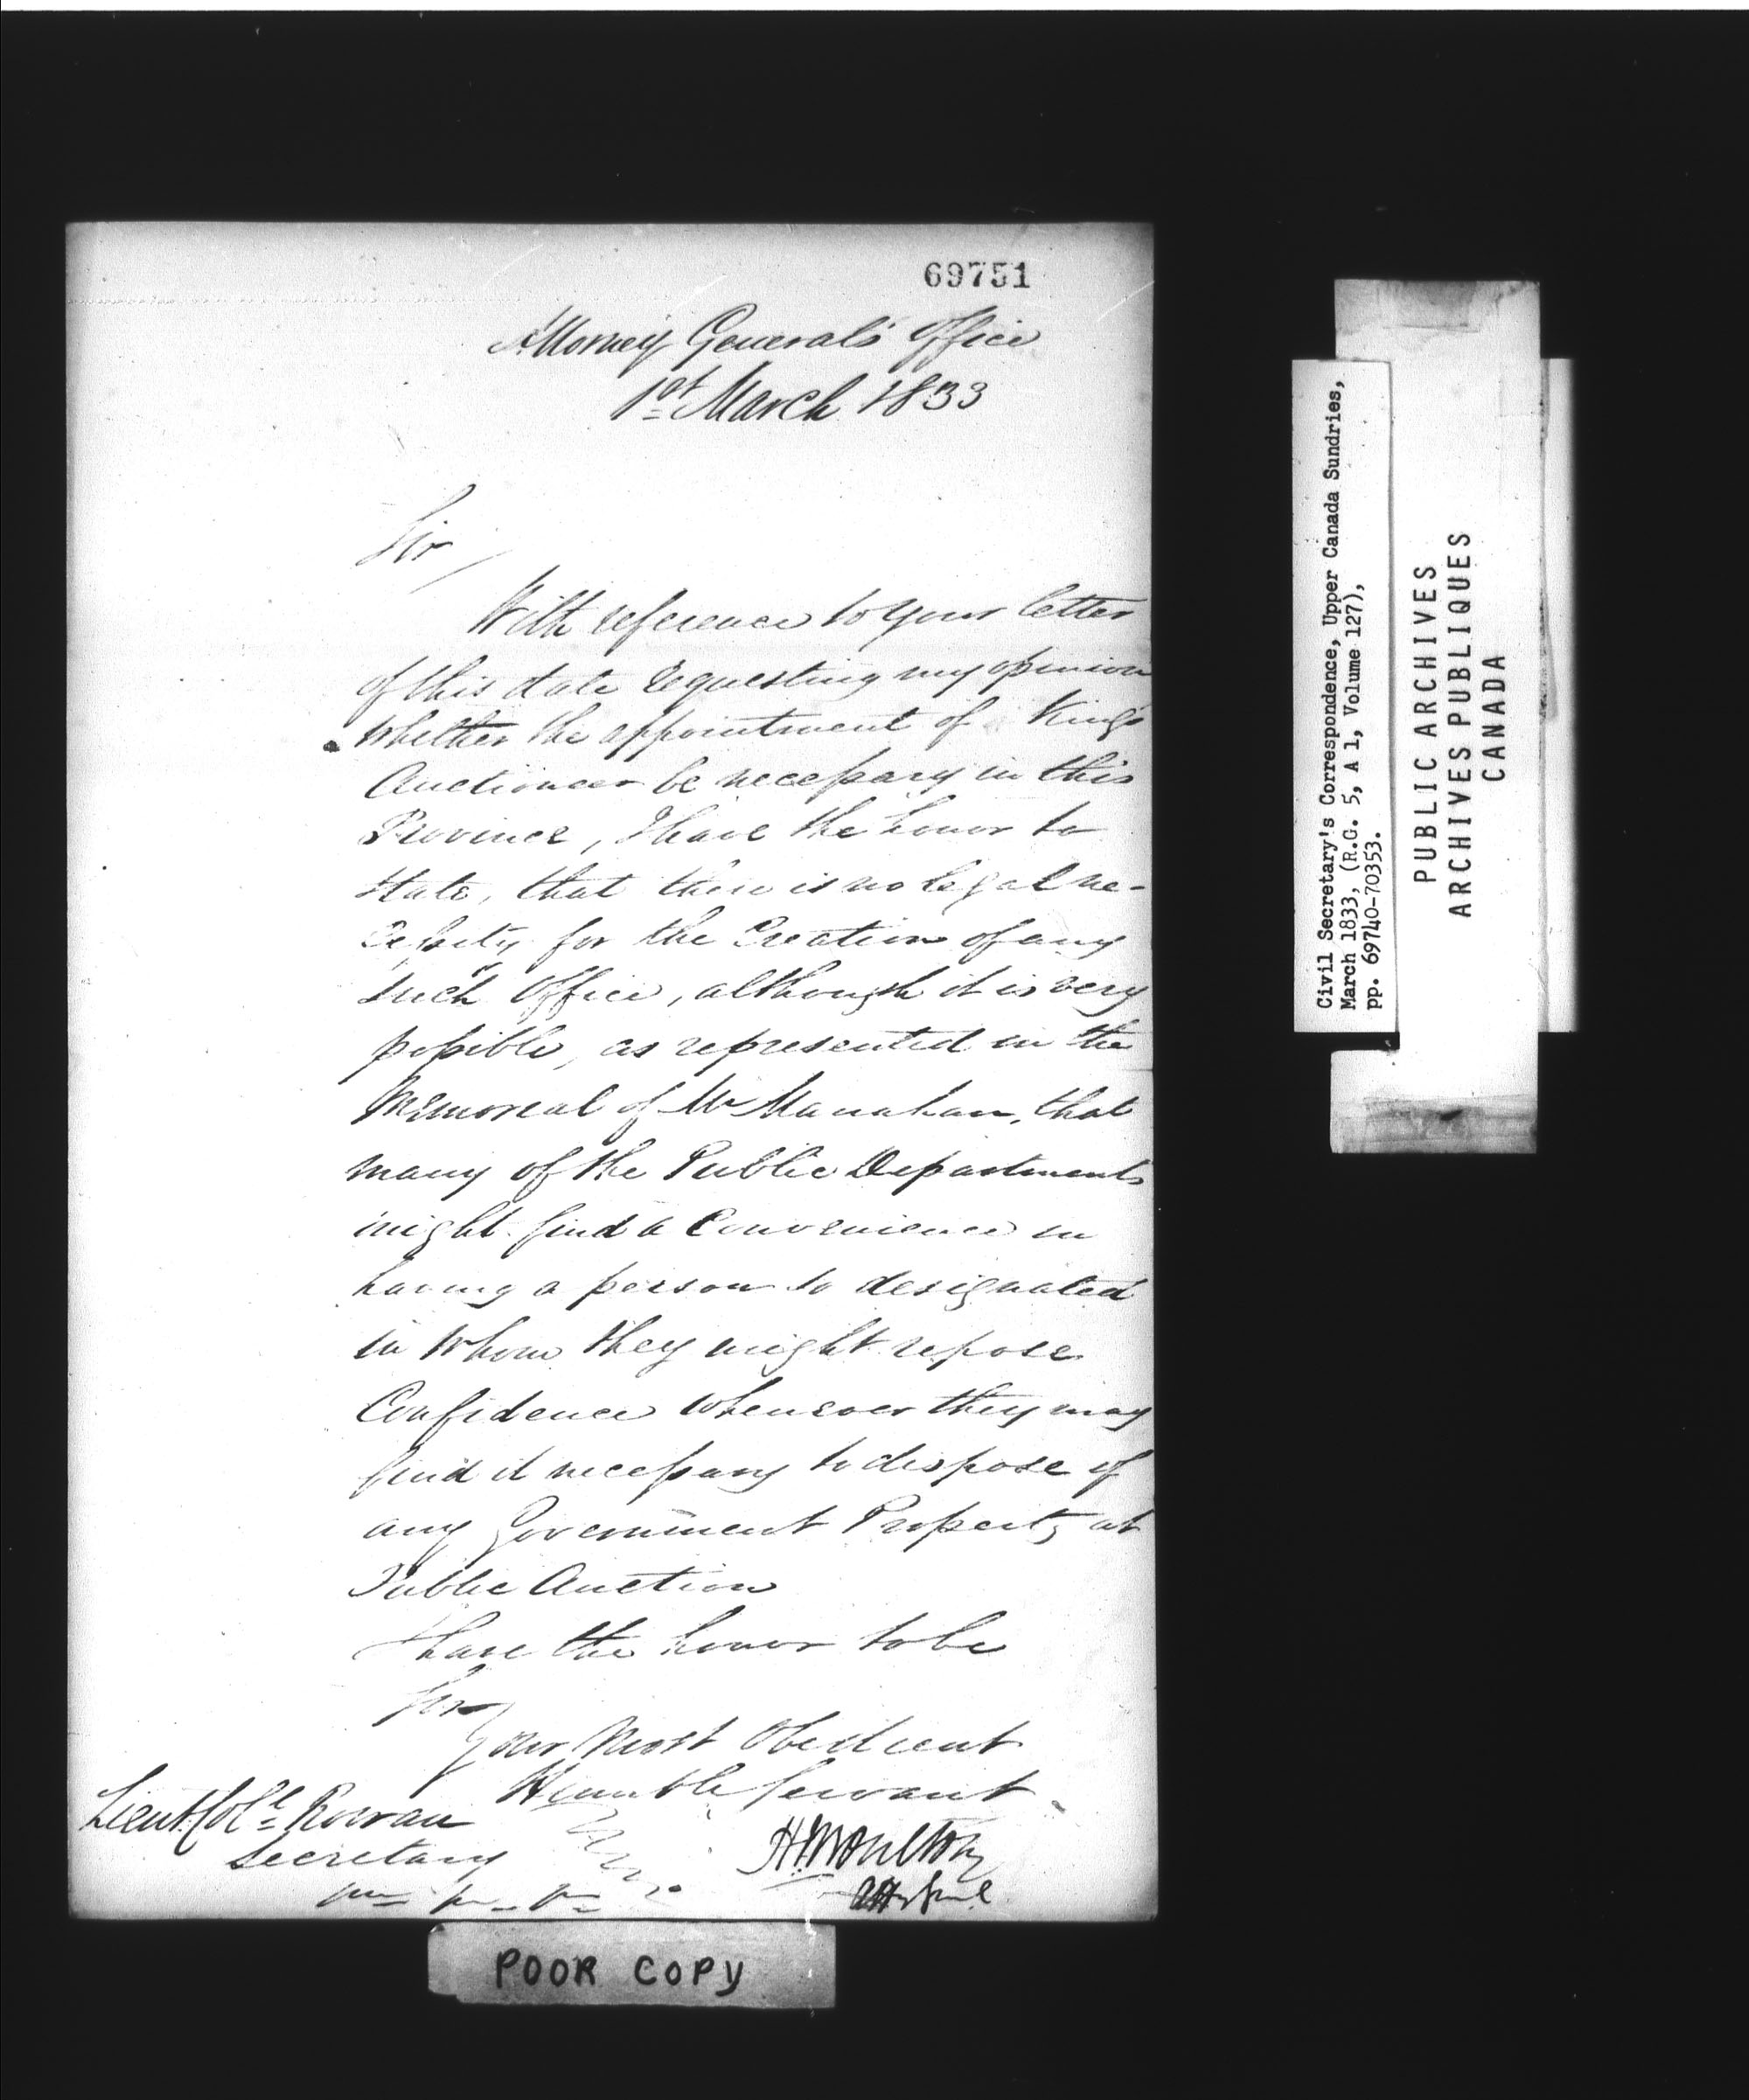 69751
Attorney General's Office
1st March 1833
Sir,
With reference to your letter
of this date requesting my opinion
whether the appointment of King's
Auctioneer be necessary in this
Province, I have the honor to
state, that there is no legal ne-
cessity for the Creation of any
such Office, although it is very
possible, as represented in the
Memorial of Mr Manahan, that
many of the Public Departments
might find a Convenience in
having a person so designated
in whom they might repose
Confidence whenever they may
find it necessary to dispose of
any Government Property at
Public Auction
I have the honor to be
Sir
Your Most Obedient
Humble Servant
Lieut Col. Rowan
Secretary
H J Boulton
Atty Genl
POOR COPY
Civil Secretary's Correspondence, Upper Canada Sundries,
March 1833, (R.G. 5, A 1, Volume 127),
pp. 69740-70353.
PUBLIC ARCHIVES
ARCHIVES PUBLIQUES
CANADA